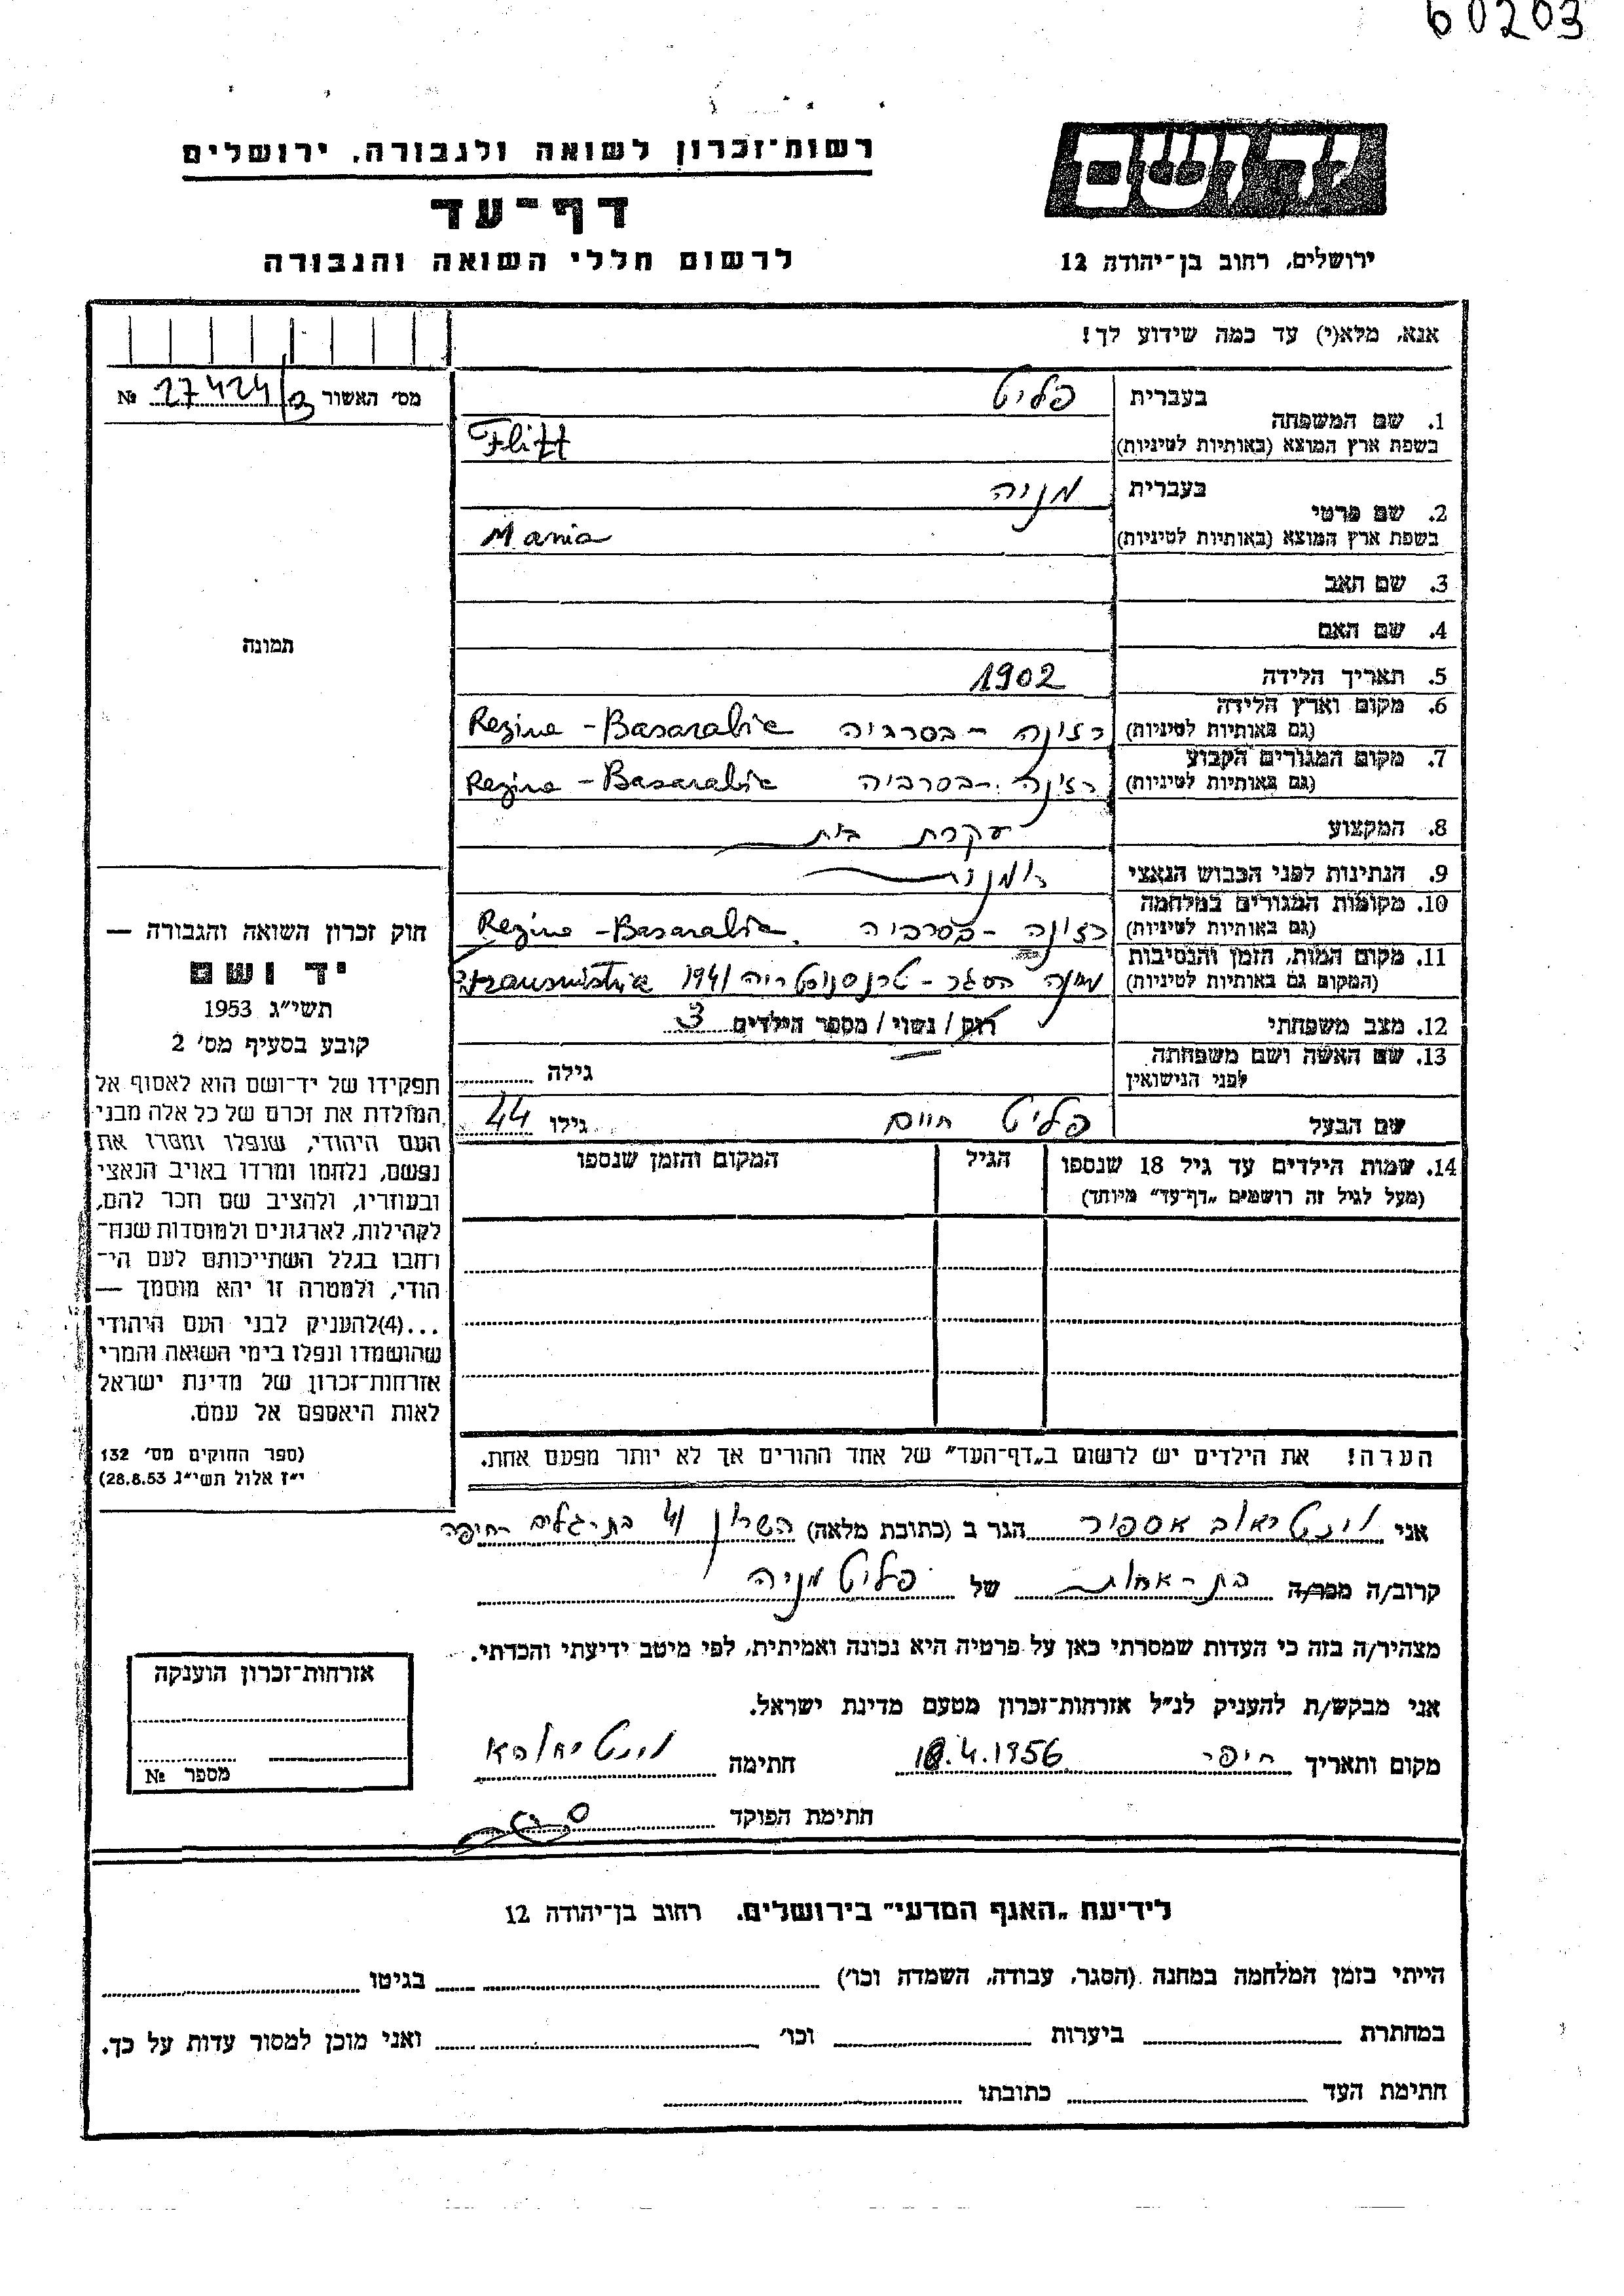 60203
רשות־זכרון לשואה ולגבורה, ירושלים
דף־עד
לרשום חללי השואה והגבורה
יד ושם
ירושלים, רחוב בן־יהודה 12
אנא, מלא(י) עד כמה שידוע לך!
מס׳ האשור 27424/3 №
1. שם המשפחה
בעברית פליט
בשפת ארץ המוצא (באותיות לטיניות) Flitt
2. שם פרטי
בעברית מניה
בשפת ארץ המוצא (באותיות לטיניות) Mania
3. שם האב
4. שם האם
5. תאריך הלידה 1902
6. מקום וארץ הלידה
(גם באותיות לטיניות) רזינה - בסרביה Rezina - Basarabia
7. מקום המגורים הקבוע
(גם באותיות לטיניות) רזינה - בסרביה Rezina - Basarabia
8. המקצוע עקרת בית
9. הנתינות לפני הכבוש הנאצי
10. מקומות המגורים במלחמה
(גם באותיות לטיניות) רזינה - בסרביה Rezina - Basarabia
11. מקום המות, הזמן והנסיבות
(המקום גם באותיות לטיניות) מחנה הסגר - טרנסניסטריה 1941 transnistria
12. מצב משפחתי רוק / נשוי / מספר הילדים 3
13. שם האשה ושם משפחתה
לפני הנישואין גילה
שם הבעל פליט חיים גילו 44
14. שמות הילדים עד גיל 18 שנספו
(מעל לגיל זה רושמים „דף־עד״ מיוחד)
הגיל
המקום והזמן שנספו
הערה! את הילדים יש לרשום ב„דף־העד״ של אחד ההורים אך לא יותר מפעם אחת.
תמונה
חוק זכרון השואה והגבורה —
יד ושם
תשי״ג 1953
קובע בסעיף מס׳ 2
תפקידו של יד־ושם הוא לאסוף אל
המולדת את זכרם של כל אלה מבני
העם היהודי, שנפלו ומסרו את
נפשם, נלחמו ומרדו באויב הנאצי
ובעוזריו, ולהציב שם וזכר להם,
לקהילות, לארגונים ולמוסדות שנח־
רחבו בגלל השתייכותם לעם הי־
הודי, ולמטרה זו יהא מוסמך —
...(4)להעניק לבני העם היהודי
שהושמדו ונפלו בימי השואה והמרי
אזרחות־זכרון של מדינת ישראל
לאות היאספם אל עמם.
(ספר החוקים מס׳ 132
י״ז אלול תשי״ג 28.8.53)
אני אספיר הגר ב (כתובת מלאה) השרון בת-גלים חיפה
קרוב/ה מכר/ה בת-אחות של פליט מניה
מצהיר/ה בזה כי העדות שמסרתי כאן על פרטיה היא נכונה ואמיתית, לפי מיטב ידיעתי והכרתי.
אני מבקש/ת להעניק לנ״ל אזרחות־זכרון מטעם מדינת ישראל.
מקום ותאריך חיפה 18.4.1956 חתימה
חתימת הפוקד
אזרחות־זכרון הוענקה
מספר №
לידיעת „האגף המדעי״ בירושלים. רחוב בן־יהודה 12
הייתי בזמן המלחמה במחנה (הסגר, עבודה, השמדה וכו׳) בגיטו
במחתרת ביערות וכו׳ ואני מוכן למסור עדות על כך.
חתימת העד כתובתו